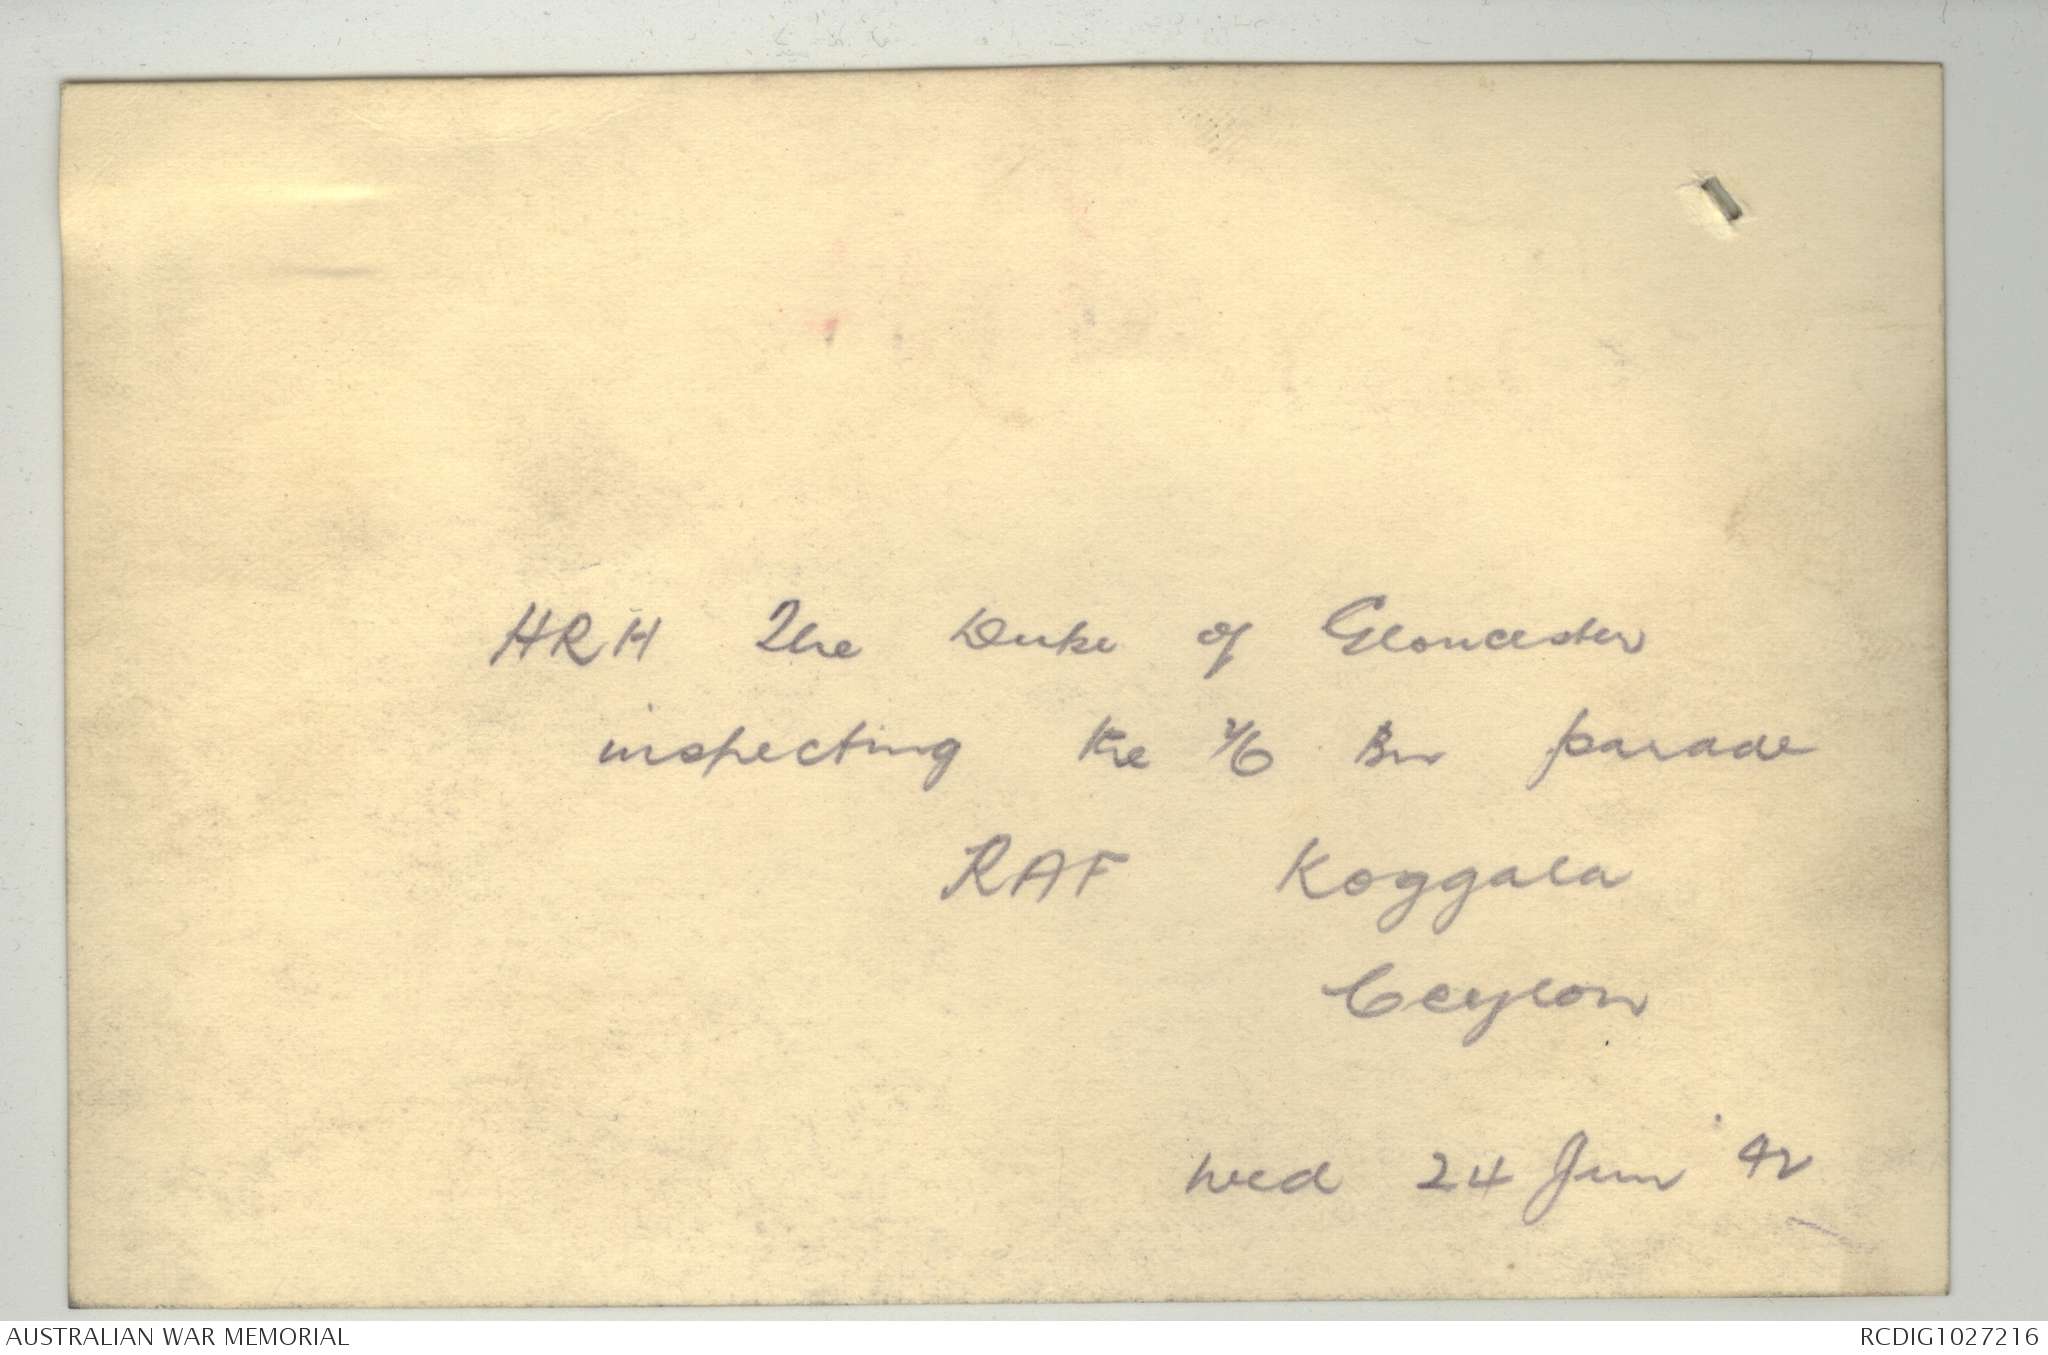 HRH The Duke of Gloucester
inspecting the 2/6 Bn parade
RAF Koggala
Ceylon
Wed 24 Jun '42
AUSTRALIAN WAR MEMORIAL
RCDIG1027216